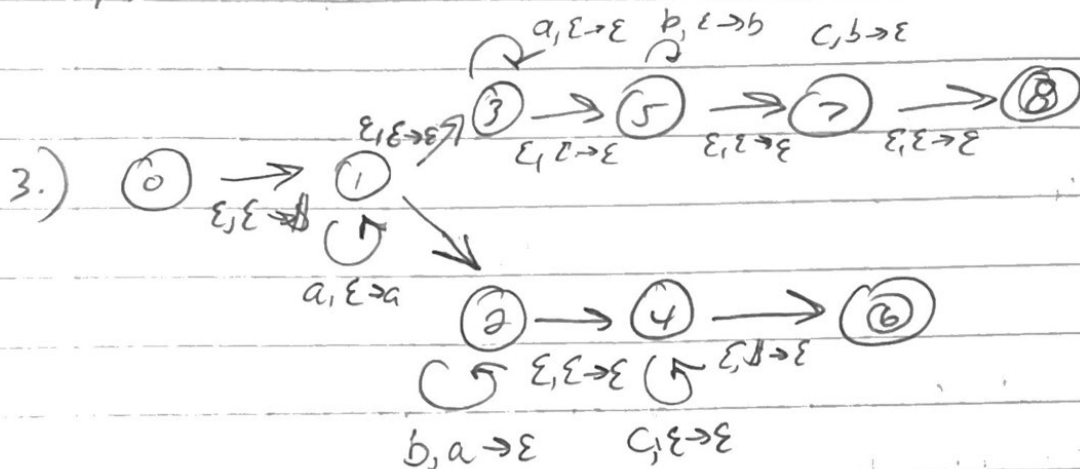 a,ε→ε b,ε→b c,b→ε
3 5 7 8
ε,ε→ε ε,ε→ε ε,ε→ε ε,ε→ε
3.) 0 1
ε,ε→$
a,ε→a
2 4 6
ε,ε→ε ε,$→ε
b,a→ε c,ε→ε